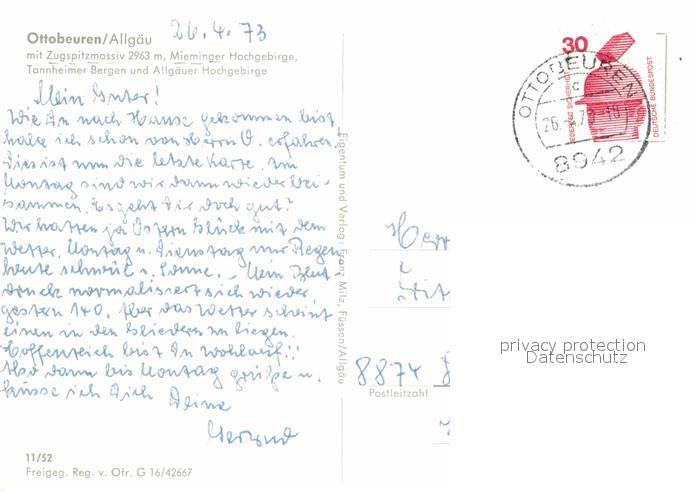 26.4.73
Ottobeuren/Allgäu
mit Zugspitzmassiv 2963 m, Mieminger Hochgebirge,
Tannheimer Bergen und Allgäuer Hochgebirge
Mein Guter!
Wie Du nach Hause gekommen bist,
habe ich schon von Herrn O. erfahren.
Dies ist nun die letzte Karte. Am
Montag sind wir dann wieder bei-
sammen. Es geht Dir doch gut?
Wir hatten ja Ostern Glück mit dem
Wetter, Montag u. Dienstag nur Regen
heute schwül u. Sonne. - Mein Blut-
druck normalisiert sich wieder,
gestern 140. Aber das Wetter scheint
einem in den Gliedern zu liegen.
Hoffentlich bist Du wohlauf!!
Also dann bis Montag grüße u.
küsse ich Dich Deine
11/52
Freigeg. Reg. v. Ofr. G 16/42667
Eigentum und Verlag: Franz Milz, Füssen/Allgäu
30
JEDERZEIT SICHERHEIT
DEUTSCHE BUNDESPOST
OTTOBEUREN
c
26.4.73
8942
Herr
8874
Postleitzahl
privacy protection
Datenschutz